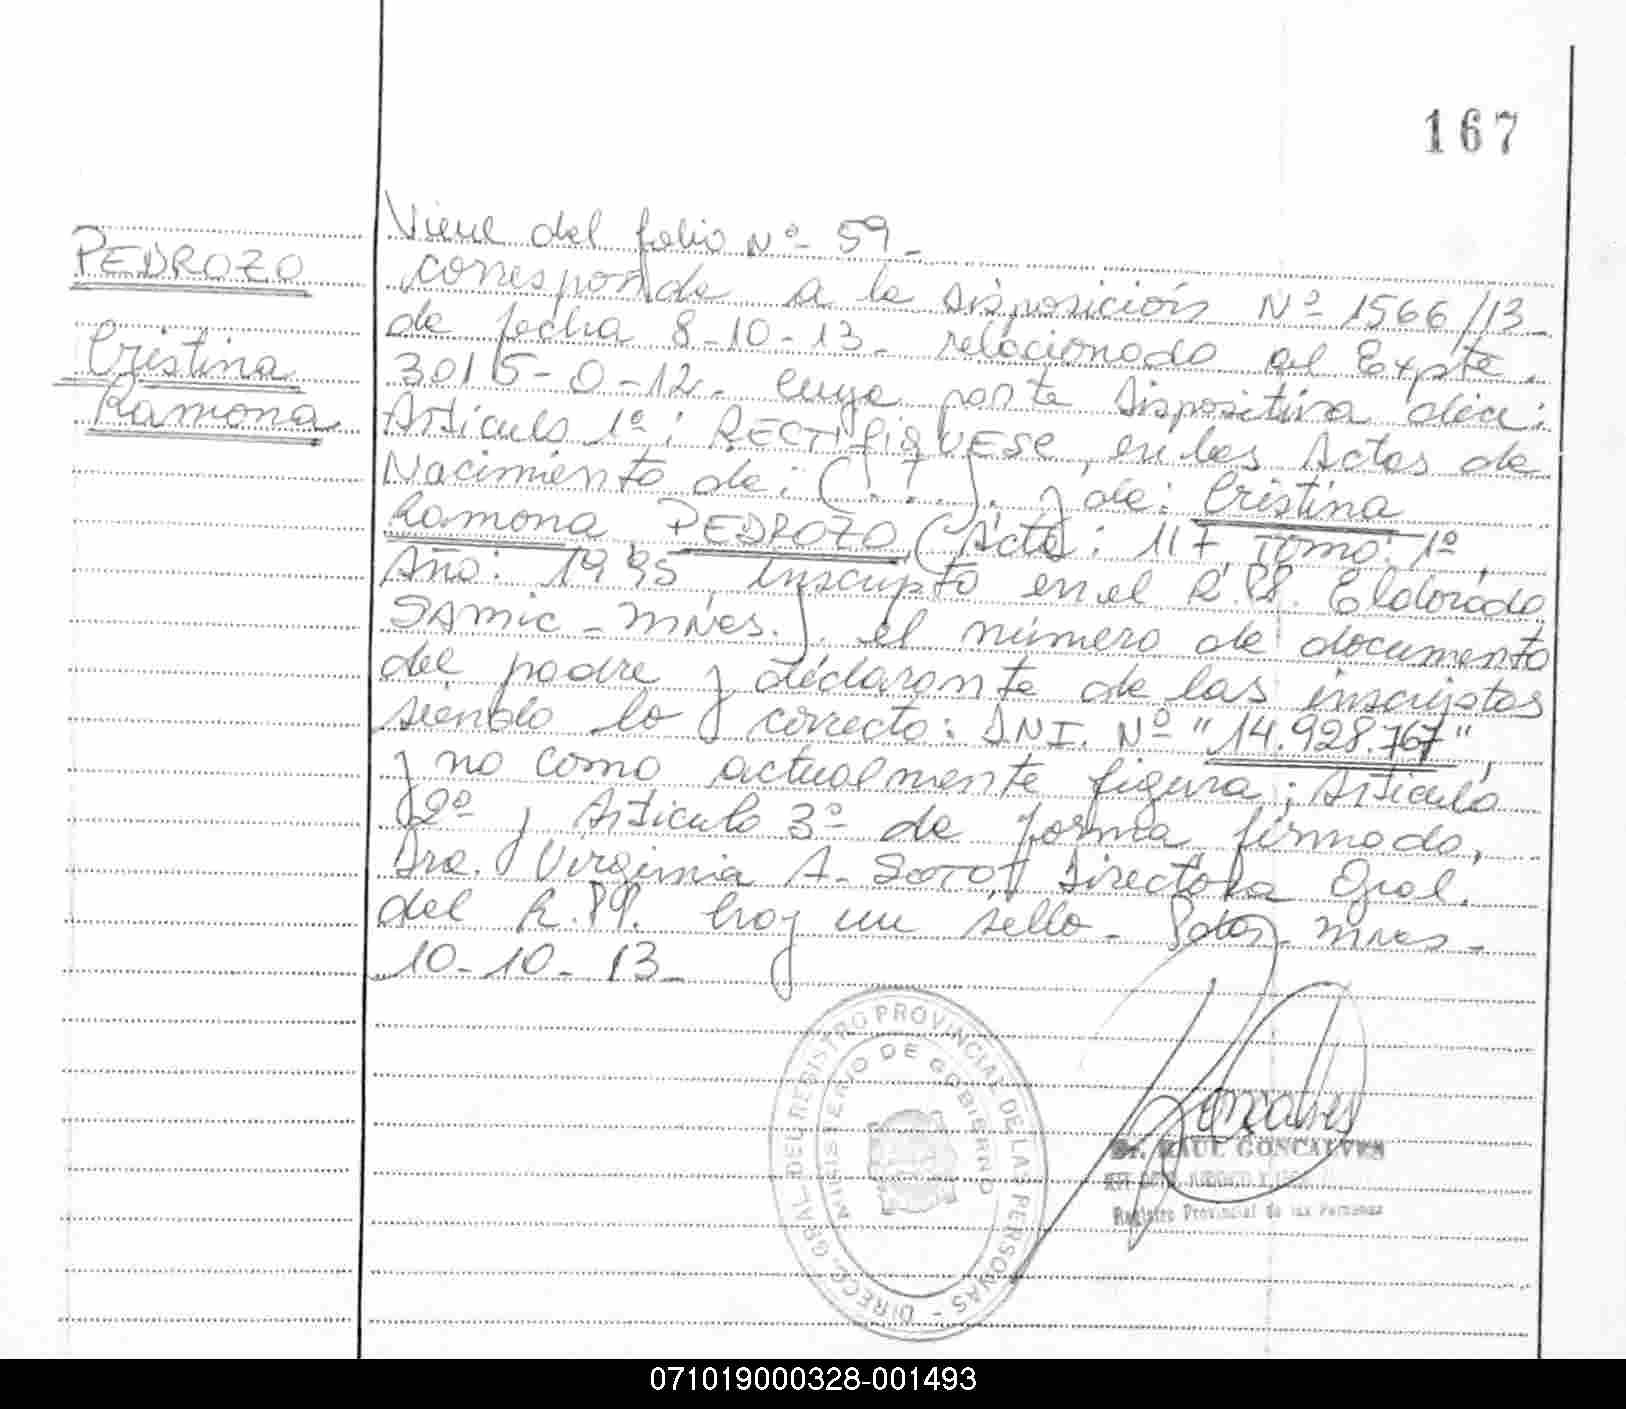 167
PEDROZO
Cristina
Ramona
Viene del folio Nº 59_
corresponde a la disposición Nº 1566/13_
de fecha 8-10-13_ relacionado al Expte.
3015-0-12_ cuya parte dispositiva dice:
Artículo 1º: RECTIFIQUESE, en las Actas de
Nacimiento de: (.....). y de: Cristina
Ramona PEDROZO (Acta: 117, Tomo: 1º,
Año: 1995 inscripta en el R.PP. Eldorado
SAMIC - Mnes.). el número de documento
del padre y declarante de las inscriptas
siendo lo correcto: DNI. Nº "14.928.767",
y no como actualmente figura; Artículo
2º y Artículo 3º de forma firmado,
Dra. Virginia A. SOTO, Directora Gral.
del R.PP. hay un sello_ Pdas_ Mnes_
10-10-13_
DIREC. GRAL. DEL REGISTRO PROVINCIAL DE LAS PERSONAS -
MINISTERIO DE GOBIERNO
Goncalves
Dr. RAUL GONCALVES
Registro Provincial de las Personas
071019000328-001493